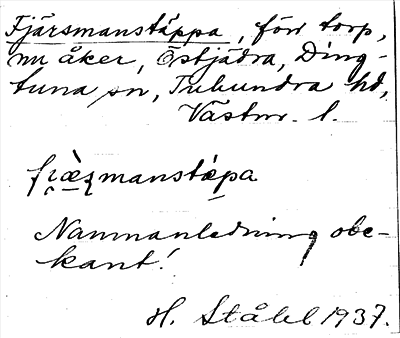 Fjärsmanstäppa, förr torp,
nu åker, Östjädra, Ding-
tuna sn, Tuhundra hd,
Västm. l.
manstæpa
Namnanledning obe-
kant!
H. Ståhl 1937.